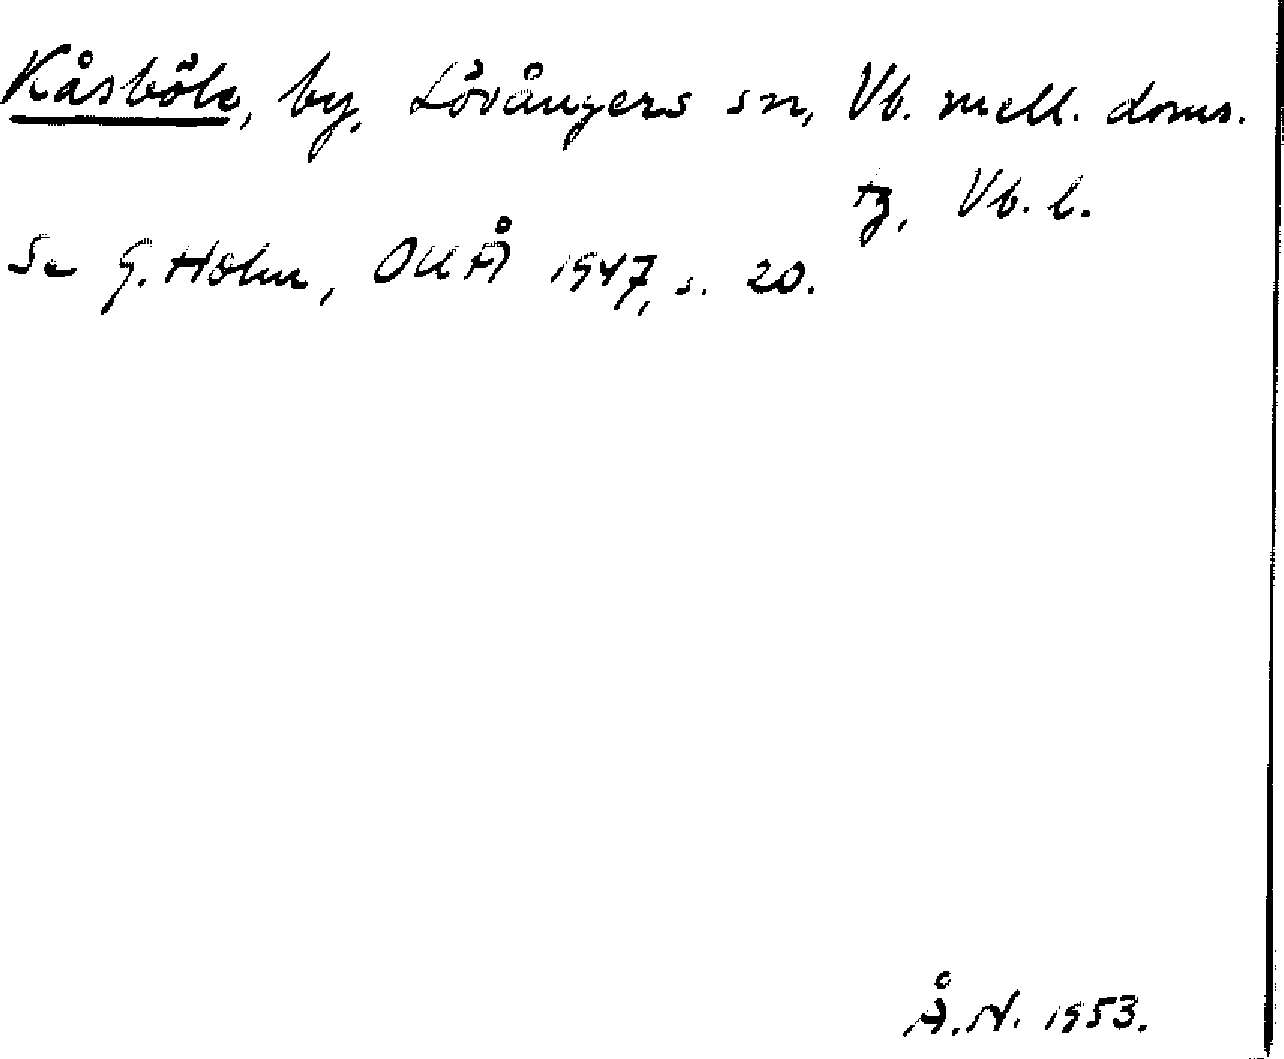 Kåsböle, by, Lövångers sn, Vb. mell. doms.
tg, Vb. l.
Se G. Holm, OUÅ 1947, s. 20.
Å.N. 1953.